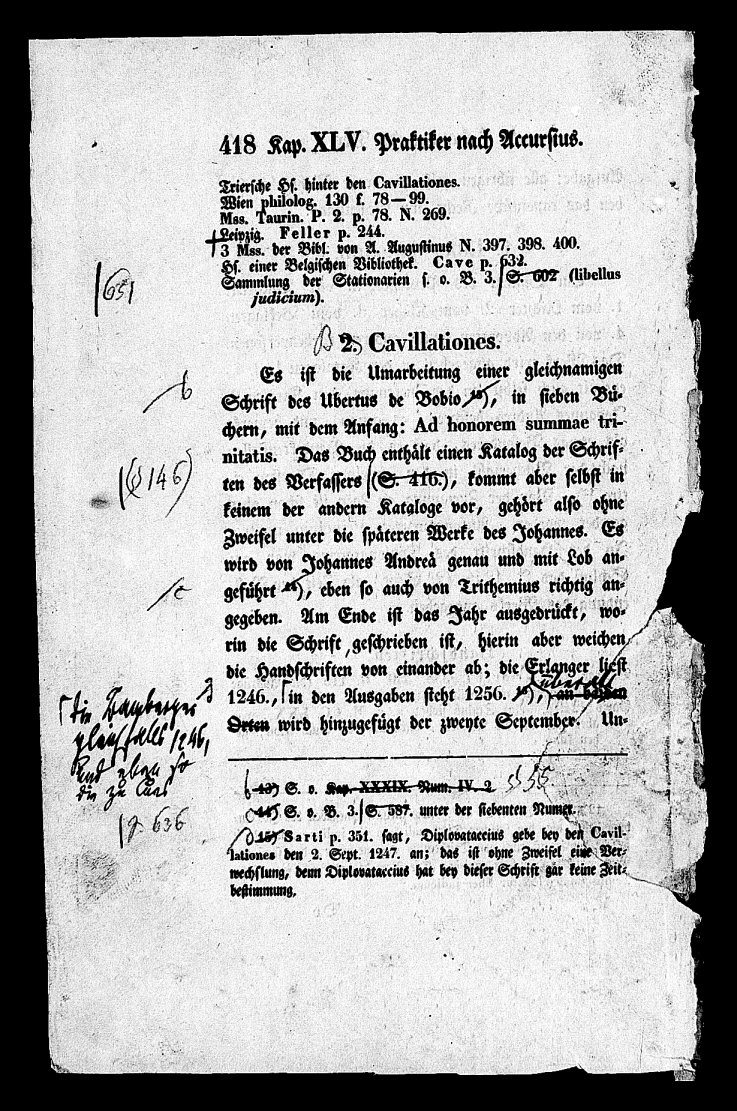 418 Kap. XLV. Praktiker nach Accursius.
Triersche Hs. hinter den Cavillationes.
Wien philolog. 130 f. 78—99.
Mss. Taurin. P. 2. p. 78. N. 269.
Leipzig. Feller p. 244.
3 Mss. der Bibl. von A. Augustinus N. 397. 398. 400.
Hs. einer Belgischen Bibliothek. Cave p. 632.
Sammlung der Stationarien s. o. B. 3. S. 602 (libellus
judicium).
651
B 2. Cavillationes.
Es ist die Umarbeitung einer gleichnamigen
Schrift des Ubertus de Bobio 13), in sieben Bü-
b
chern, mit dem Anfang: Ad honorem summae tri-
nitatis. Das Buch enthält einen Katalog der Schrif-
ten des Verfassers (S. 416.), kommt aber selbst in
(§ 146)
keinem der andern Kataloge vor, gehört also ohne
Zweifel unter die späteren Werke des Johannes. Es
wird von Johannes Andreä genau und mit Lob an-
geführt 14), eben so auch von Trithemius richtig an-
c
gegeben. Am Ende ist das Jahr ausgedrückt, wo-
rin die Schrift geschrieben ist, hierin aber weichen
die Handschriften von einander ab; die Erlanger liest
überall
1246., in den Ausgaben steht 1256. 15), an beiden
Orten wird hinzugefügt der zweyte September. Un-
die Bamberger
gleichfalls 1246,
und eben so
die zu
13) S. o. Kap. XXXIX. Num. IV. 2 § 55
14) S. o. B. 3. S. 587. unter der siebenten Numer.
636
15) Sarti p. 351. sagt, Diplovataccius gebe bey den Cavil-
lationes den 2. Sept. 1247. an; das ist ohne Zweifel eine Ver-
wechslung, denn Diplovataccius hat bey dieser Schrift gar keine Zeit-
bestimmung.